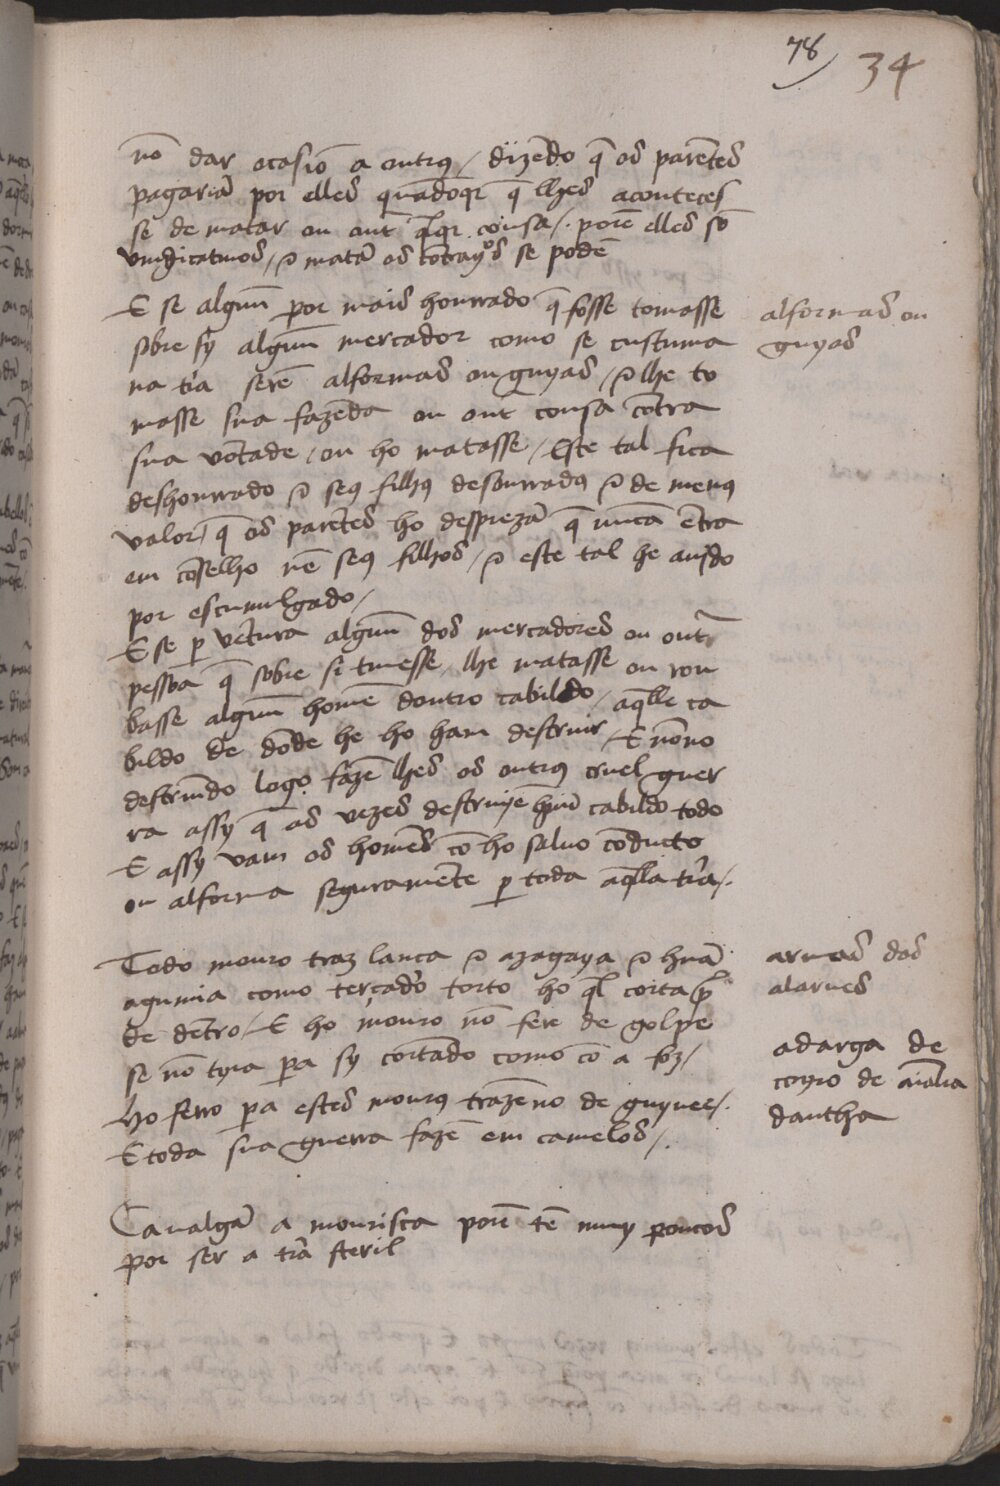 78
34
nõ dar ocasiõ a outrus / dizẽdo q̃ os parẽtes
pagariã por elles quãdoqr q̃ lhes aconteces
se de matar ou out̃ q̃lqr cousa /. porẽ elles sõ
vindicatiuos / & matã os cõtrayros se podẽ
E se algum̃ por mais honrrado q̃ fosse tomasse
sobre sy algum̃ mercador como se custuma
na trã serẽ alformas ou guyas / & lhe to
masse sua fazẽda ou out̃ cousa cõtra
sua võtade / ou ho matasse / Este tal fica
deshonrrado & seus filhus desonrradus & de menus
valor / q̃ os parẽtes ho desprezã q̃ nũca ẽtra
em cõselho nẽ seus filhos / & este tal he auido
por escumulgado /
alformas ou
guyas
E se p vẽtura algum̃ dos mercadores ou outrã
pessoa q̃ sobre si tiuesse / lhe matasse ou rou
basse algum̃ homẽ doutro cabildo / aq̃lle ca
bildo de dõde he ho ham destruir / E nõno
destruĩdo logo fazẽ lhes os outrus cruel guer
ra assy q̃ as vezes destruyẽ hum̃ cabildo todo
E assy vam os homẽs cõ ho saluo cõducto
ou alforma seguramẽte p toda aq̃lla trã /.
Todo mouro traz lanca & azagaya & huã
agumia como terçado torto ho q̃l corta p
de dẽtro / E ho mouro nõ fere de golpe
se nõ tyra pa sy cortãdo como cõ a foz /
Ho ferro pa estes mourus trazẽno de guynee /.
E toda sua guerra fazẽ em camelos /.
armas dos
alarues
adarga de
coyro de aĩalia
dantha
Caualgã a mourisca porẽ tẽ muy poucos
por ser a trã steril